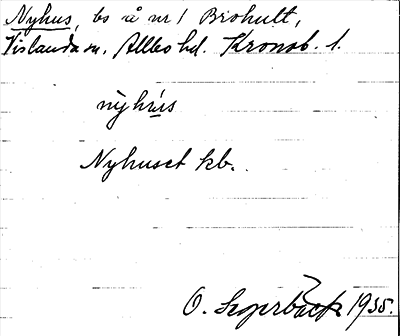 Nyhus, bs å nr 1 Brohult,
Vislanda sn, Allbo hd. Kronob. l.
nỳhús
Nyhuset kb.
O. Sagerbäck 1935.